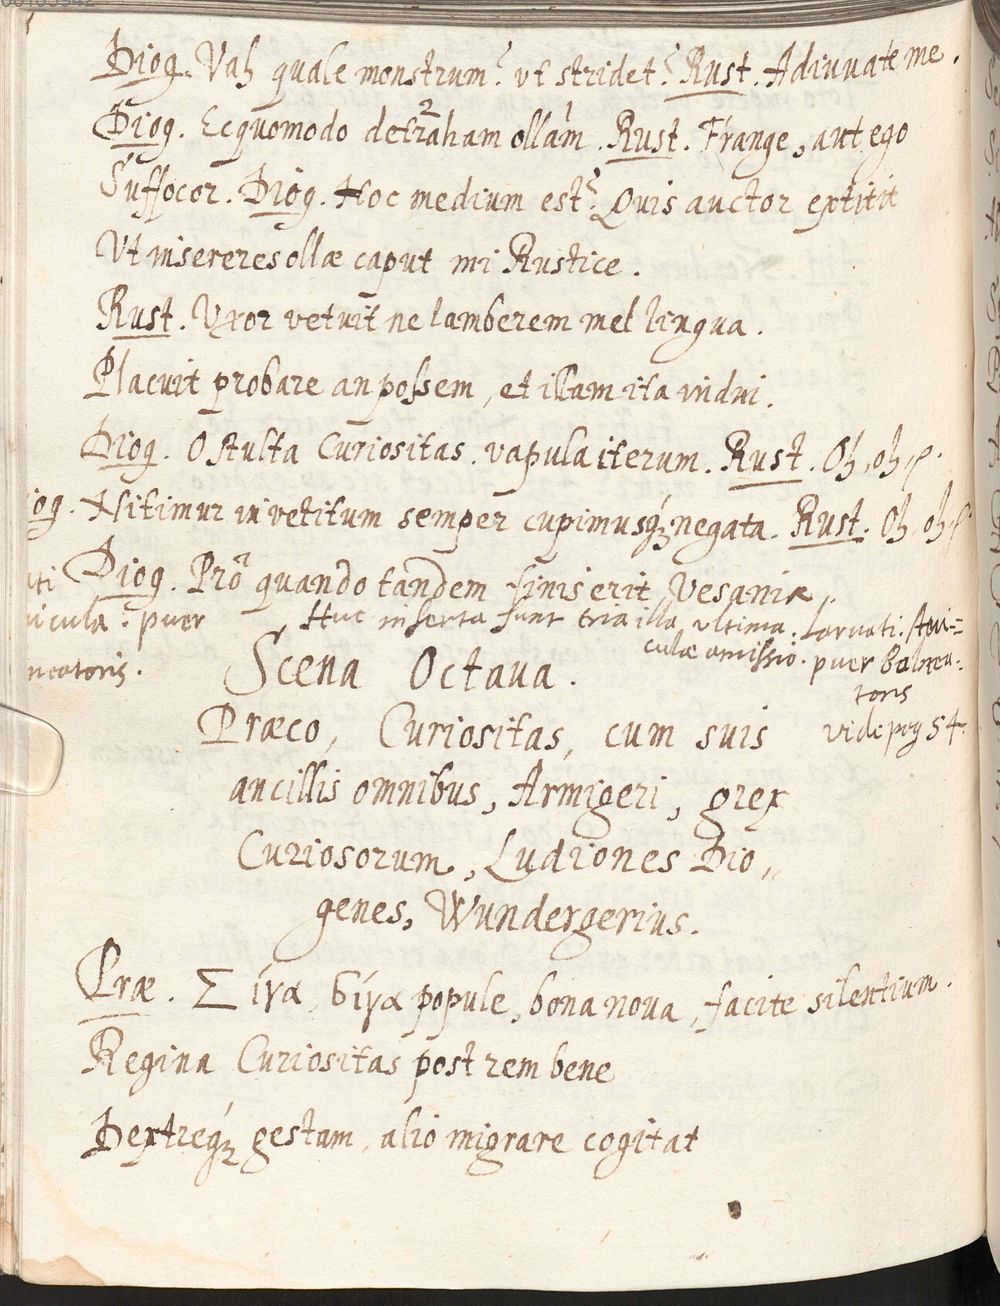 Diog. Vah quale monstrum? ut stridet? Rust. Adiuuate me.
Diog. Ecquomodo detraham ollam. Rust. Frange, aut ego
Suffocor. Diog. Hoc medium est? Quis auctor extitit
Ut misereres ollæ caput mi Rustice.
Rust. Uxor vetuit ne lamberem mel lingua.
Placuit probare an possem, et illam ita indui.
Diog. O stulta Curiositas. vapula iterum. Rust. Oh, oh,
iog. Nitimur in vetitum semper cupimusqꝫ negata. Rust. Oh, oh,
Diog. Prô quando tandem finis erit Vesaniæ.
ati
uicula: puer
neatoris.
Huc inserta sunt tria illa ultima. Laruati. Aui=
culæ amissio. puer Balnea=
toris
vide pag 54.
Scena Octaua.
Præco, Curiositas, cum suis
ancillis omnibus, Armigeri, grex
Curiosorum, Ludiones Dio,,
genes, Wundergerius.
Præ. Σίγα, σίγα popule, bona noua, facite silentium.
Regina Curiositas post rem bene
Dextreqꝫ gestam, alio migrare cogitat